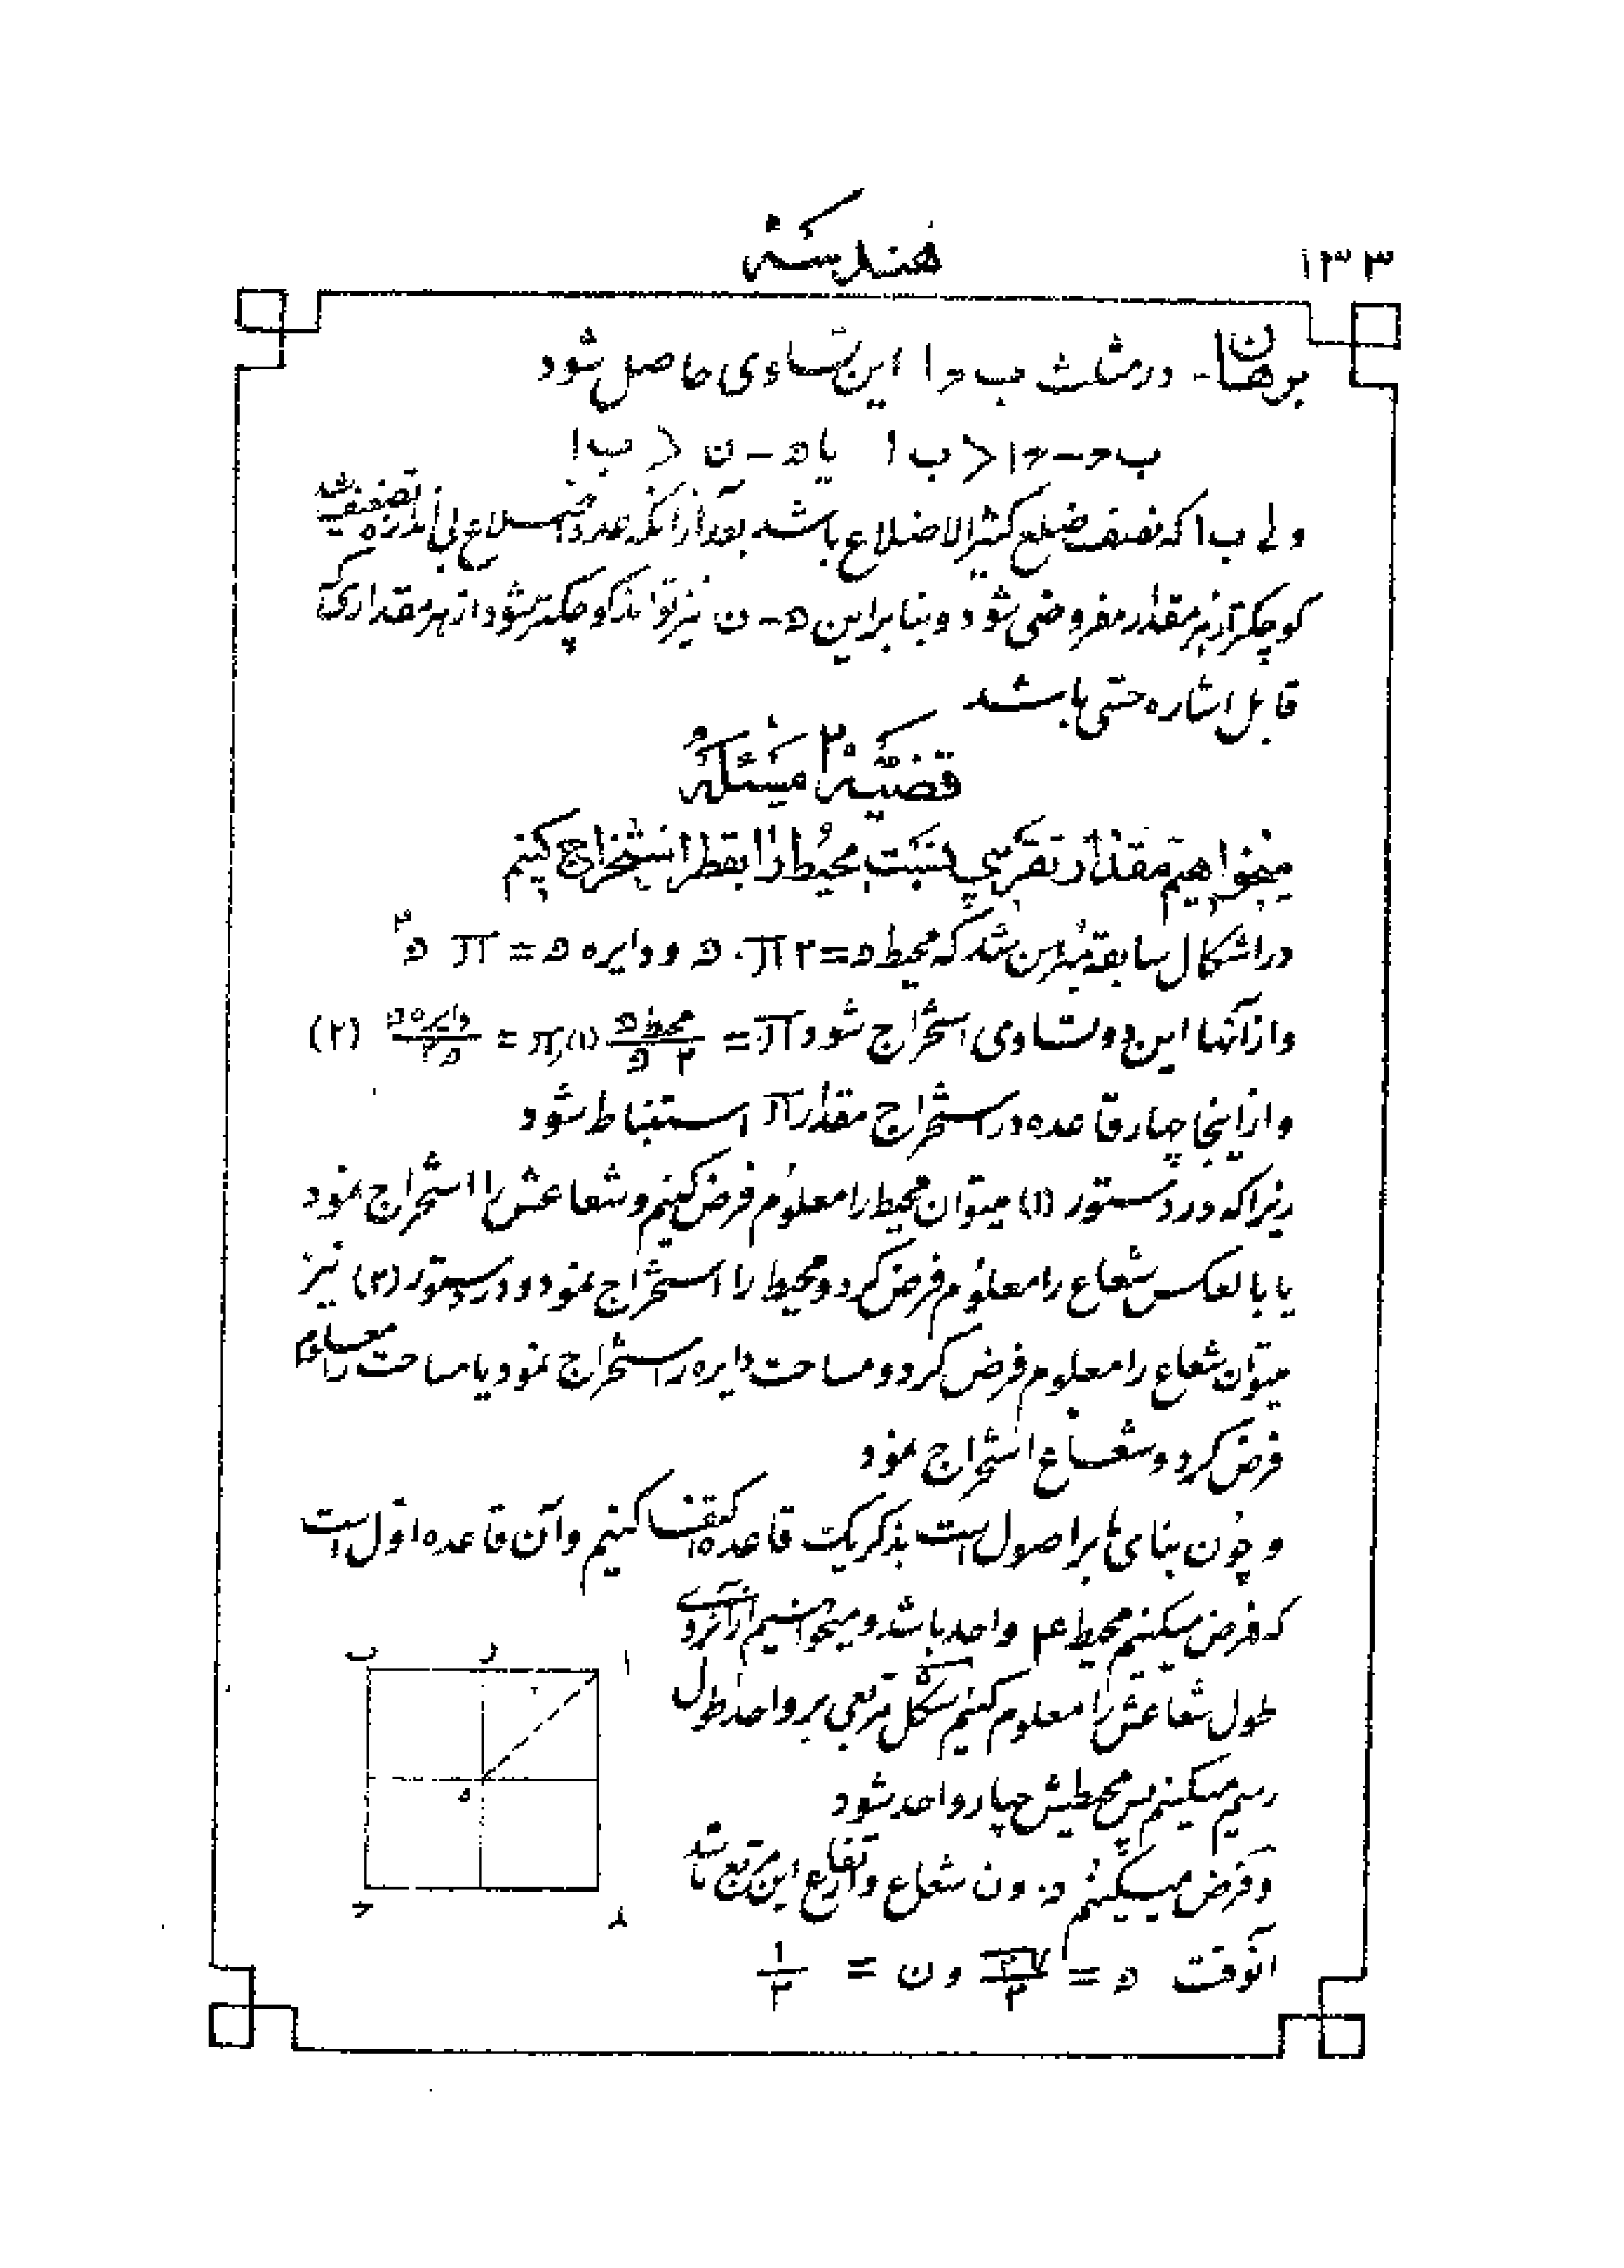 ۱۳۳
هندسه
برهان - در مثلث ب ح ا این تساوی حاصل شود
ب ح – ح ا < ب ا یا ه – ن < ب ا
ولی ب ا که نصف ضلع کثیرالاضلاع باشد بعد از آنکه عدد اضلاع بی اندازه تضعیف شد
کوچکتر از هر مقدار مفروضی شود و بنابراین ه – ن نیز تواند کوچکتر شود از هر مقداری که
قابل اشاره حسی باشد
قضیه ۲۰ مسئله
میخواهیم مقدار تقریبی نسبت محیط را بقطر استخراج کنیم
در اشکال سابقه مبرهن شد که محیط ه = ۲ π . ه و دایره ه = π ه ۲
و از آنها این دو تساوی استخراج شود π = محیط ه / ۲ ه (۱) , π = دایره ه / ه ۲ (۲)
و از اینجا چهار قاعده در استخراج مقدار π استنباط شود
زیرا که در دستور (۱) میتوان محیط را معلوم فرض کنیم و شعاعش را استخراج نمود
یا بالعکس شعاع را معلوم فرض کرد و محیط را استخراج نمود و در دستور (۲) نیز
میتوان شعاع را معلوم فرض کرد و مساحت دایره را استخراج نمود یا مساحت را معلوم
فرض کرد و شعاع استخراج نمود
و چون بنای ما بر اصول است بذکر یک قاعده اکتفا کنیم و آن قاعده اول است
که فرض میکنیم محیط ۴ واحد باشد و میخواهیم از آنرو
طول شعاعش را معلوم کنیم شکل مربعی بر واحد طول
رسم میکنیم پس محیطش چهار واحد شود
و فرض میکنیم ه . و ن شعاع و ارتفاع این مربع باشد
آنوقت ه = √۲ / ۲ و ن = ۱ / ۲
ب
ر
ا
ه
ح
د